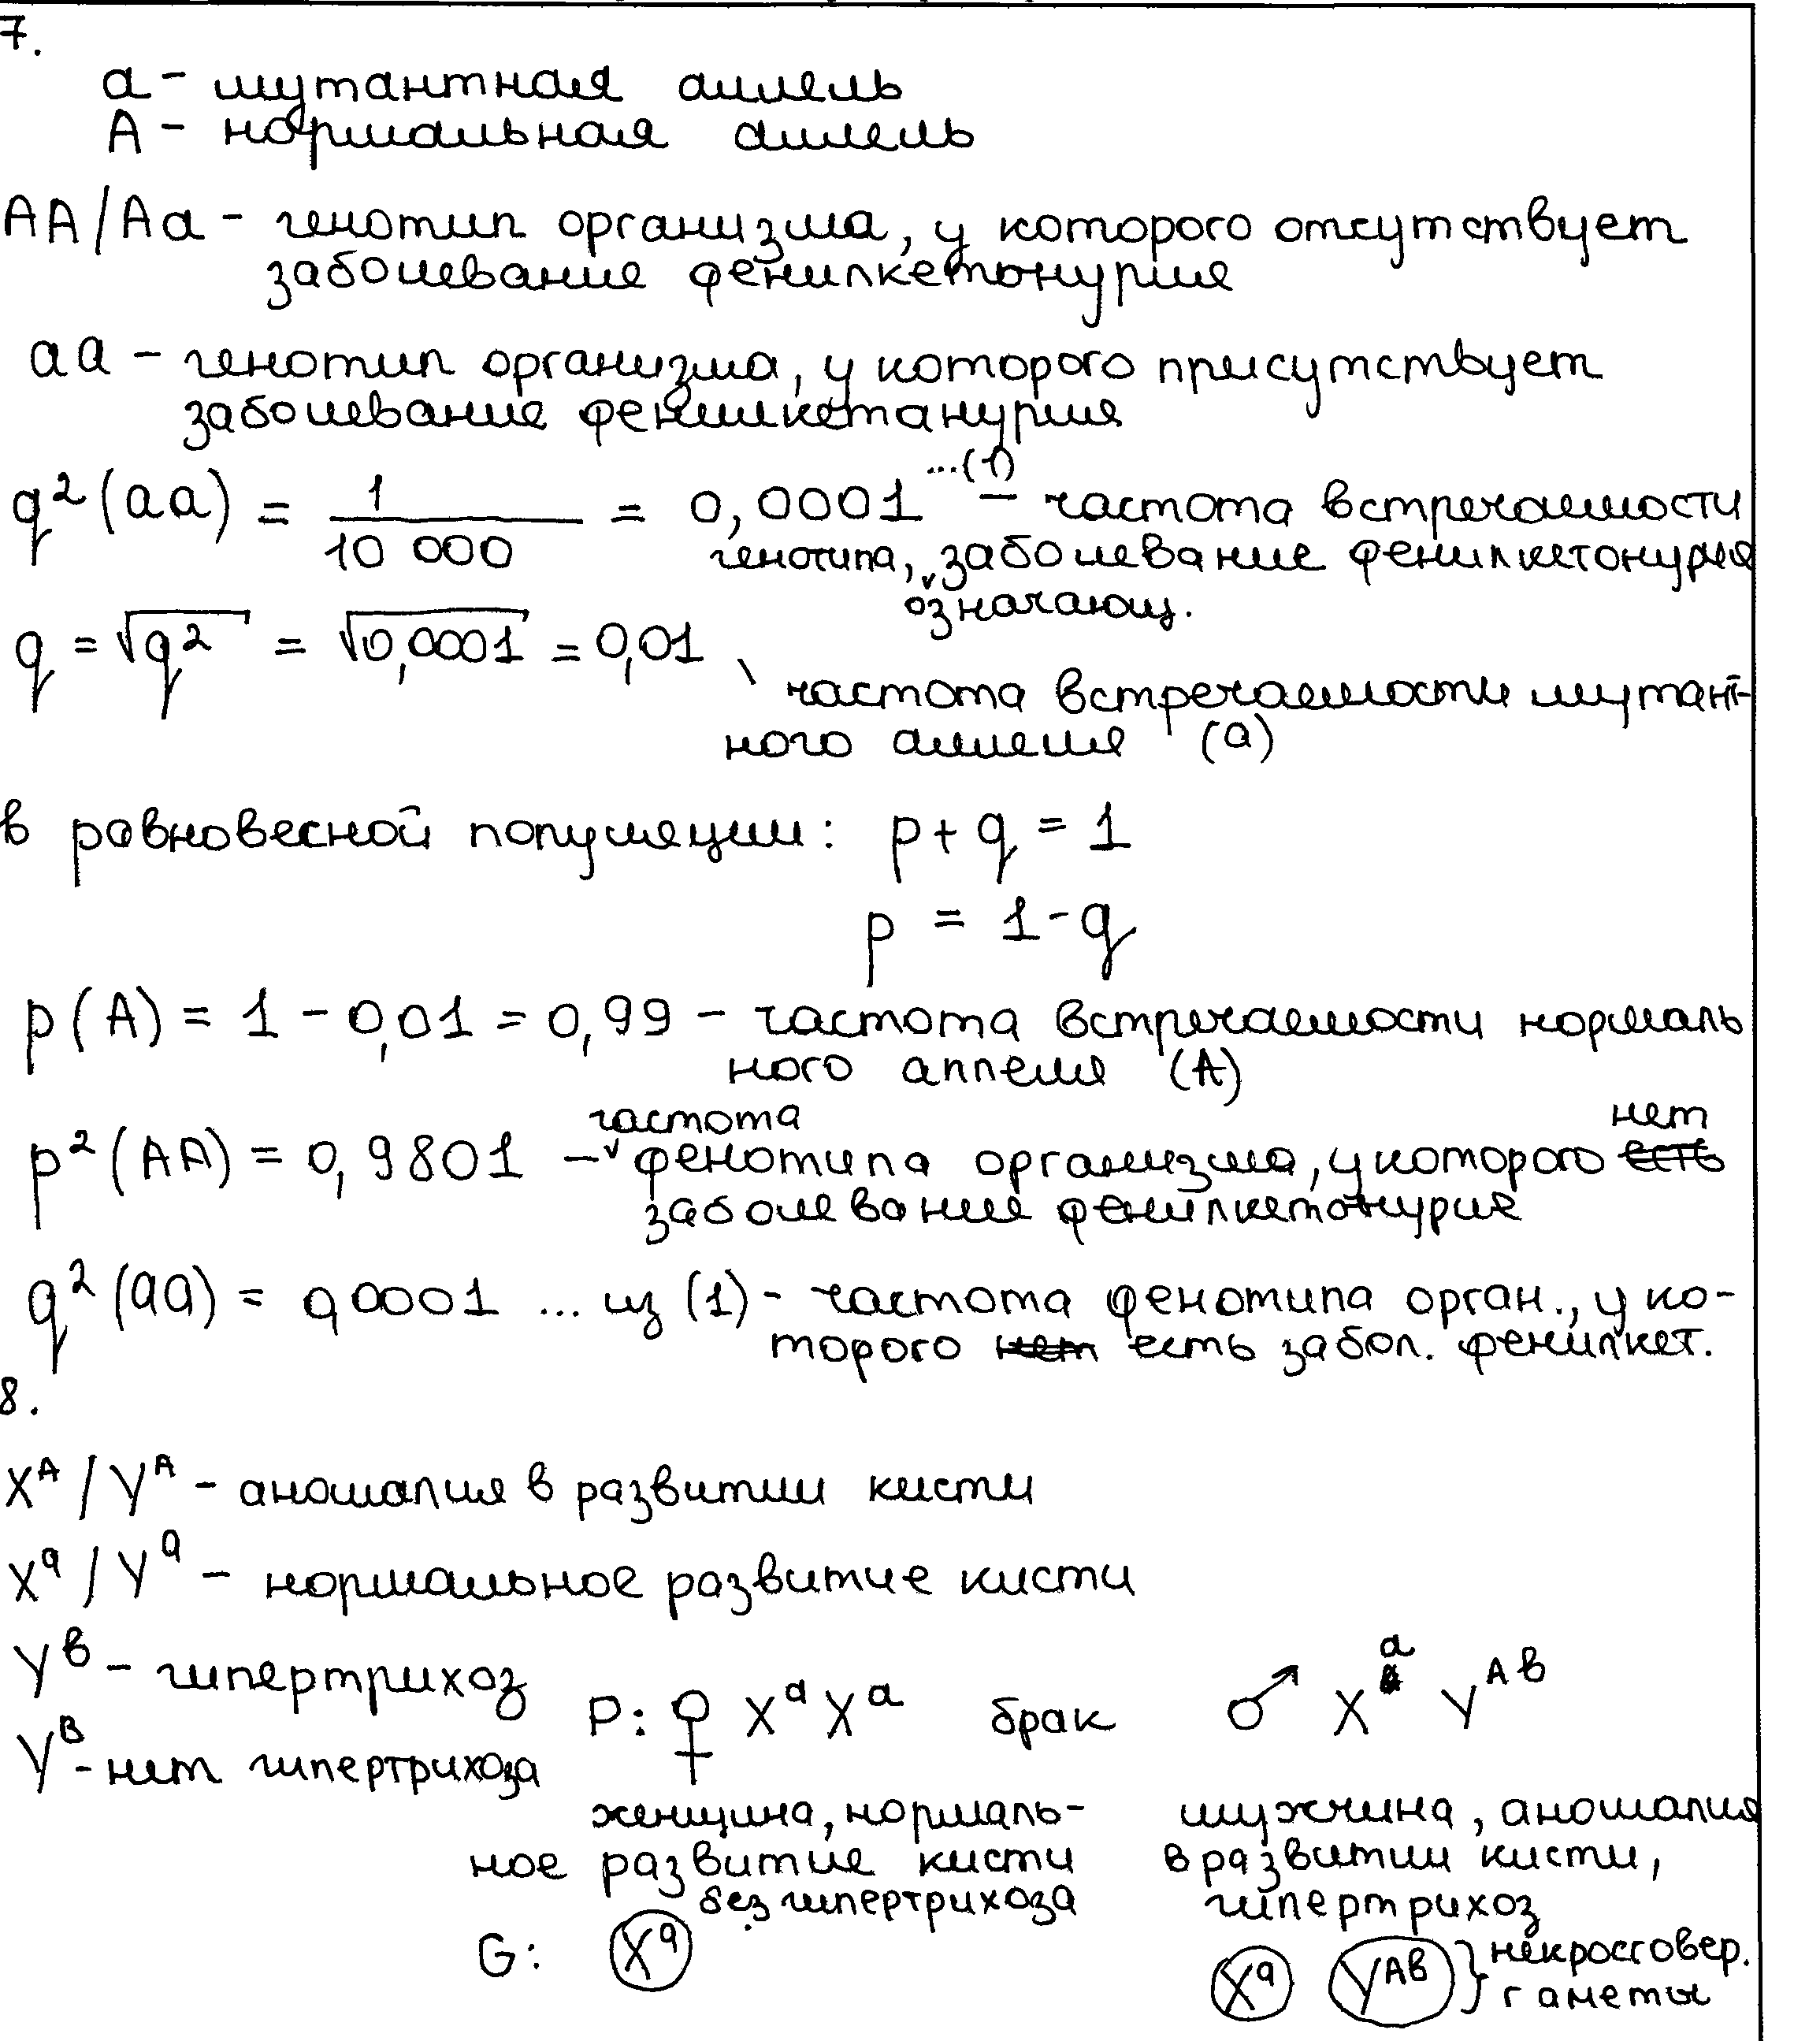 7.
a - мутантная аллель
A - нормальная аллель
AA/Aa - генотип организма, у которого отсутствует
заболевание фенилкетонурия
aa - генотип организма, у которого присутствует
заболевание фенилкетанурия
q²(aa) = 1/10 000 = 0,0001 ...(1) - частота встречаемости
генотипа, означающ. заболевание фенилкетонурия
q = √q² = √0,0001 = 0,01
частота встречаемости мутант-
ного аллеля (a)
в равновесной популяции: p + q = 1
p = 1 - q
p(A) = 1 - 0,01 = 0,99 - частота встречаемости нормаль
ного аллеля (A)
p²(AA) = 0,9801 - частота фенотипа организма, у которого нет
заболевание фенилкетонурия
q²(aa) = 0,0001 ... из (1) - частота фенотипа орган., у ко-
торого есть забол. фенилкет.
8.
X^A / Y^A - аномалия в развитии кисти
X^a / Y^a - нормальное развитие кисти
Y^b - гипертрихоз
Y^B - нет гипертрихоза
P: ♀ X^a X^a брак ♂ X^a Y^Ab
женщина, нормаль-
ное развитие кисти
без гипертрихоза
мужчина, аномалия
в развитии кисти,
гипертрихоз
G: X^a X^a Y^Ab } некроссовер.
гаметы